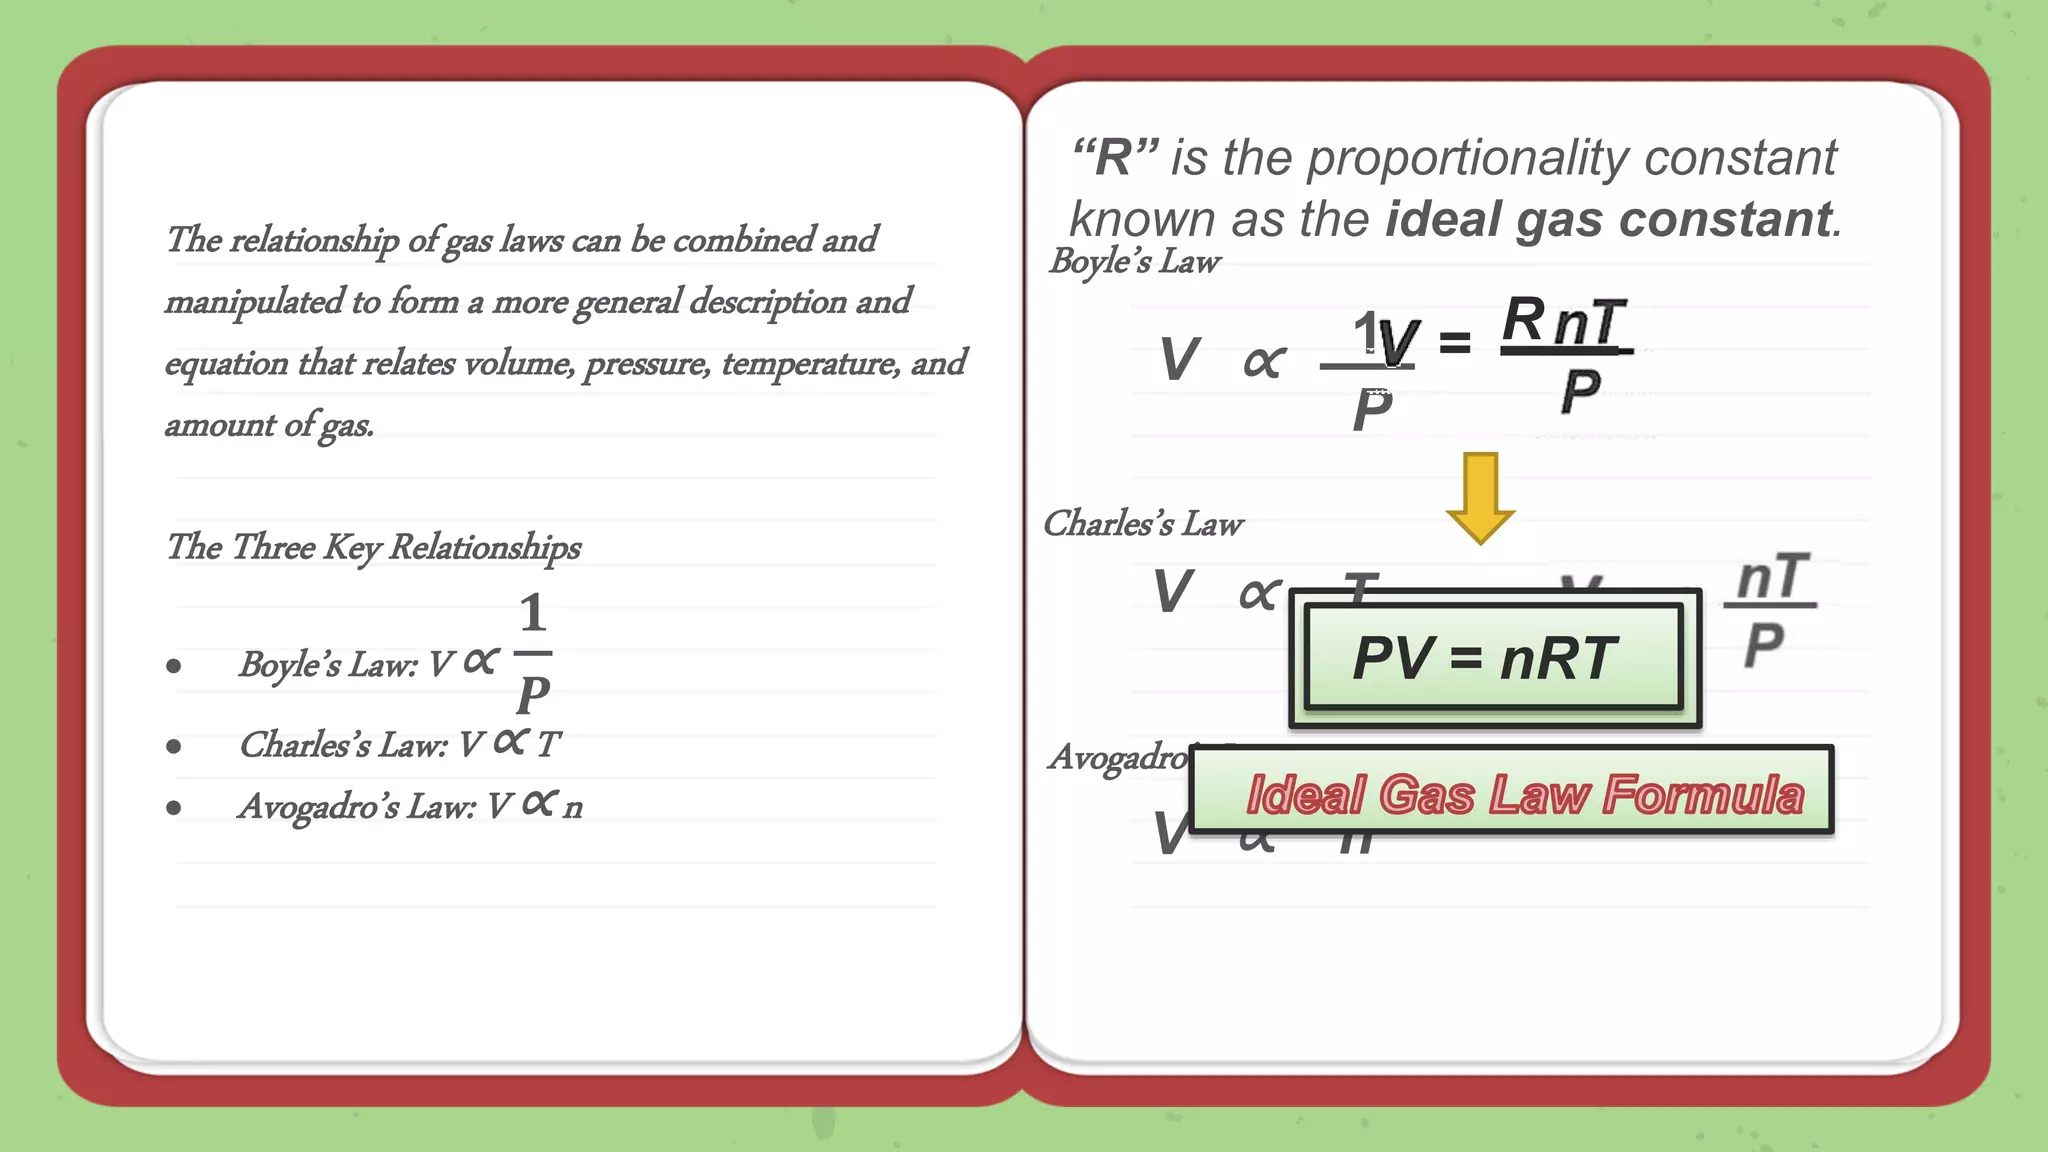 The relationship of gas laws can be combined and
manipulated to form a more general description and
equation that relates volume, pressure, temperature, and
amount of gas.
The Three Key Relationships
● Boyle's Law: V ∝ 1/P
● Charles's Law: V ∝ T
● Avogadro's Law: V ∝ n
“R” is the proportionality constant
known as the ideal gas constant.
Boyle's Law
V ∝ 1/P
V = R nT/P
Charles's Law
V ∝ T
nT/P
PV = nRT
Avogadro's
Ideal Gas Law Formula
V ∝ n